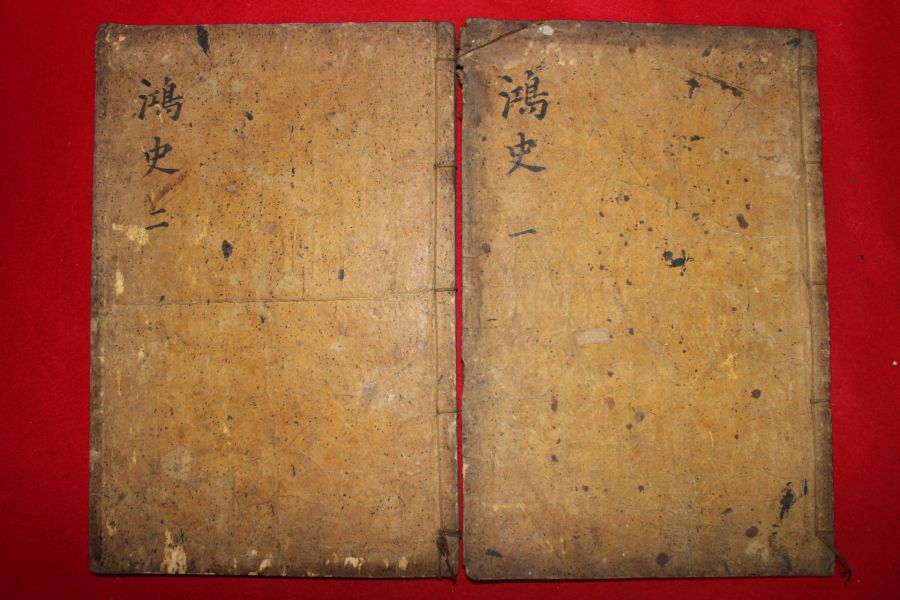 鴻史一
鴻史二